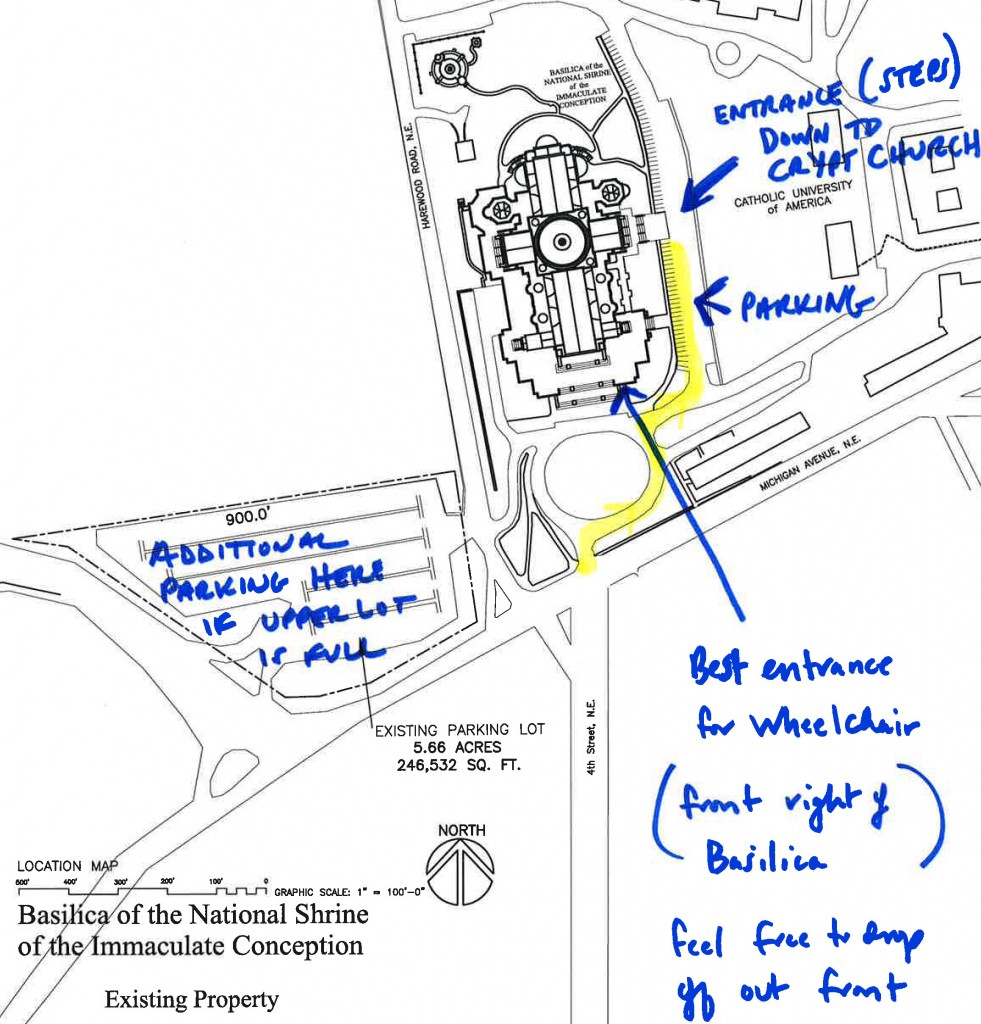 BASILICA of the
NATIONAL SHRINE
of the
IMMACULATE
CONCEPTION
HAREWOOD ROAD, N.E.
ENTRANCE (STEPS)
DOWN TO
CRYPT CHURCH
CATHOLIC UNIVERSITY
of AMERICA
PARKING
MICHIGAN AVENUE, N.E.
900.0'
ADDITIONAL
PARKING HERE
IF UPPER LOT
IS FULL
EXISTING PARKING LOT
5.66 ACRES
246,532 SQ. FT.
4th Street, N.E.
Best entrance
for wheelchair
(front right of
Basilica)
Feel free to drop
off out front
NORTH
LOCATION MAP
500' 400' 300' 200' 100' 0
GRAPHIC SCALE: 1" = 100'-0"
Basilica of the National Shrine
of the Immaculate Conception
Existing Property